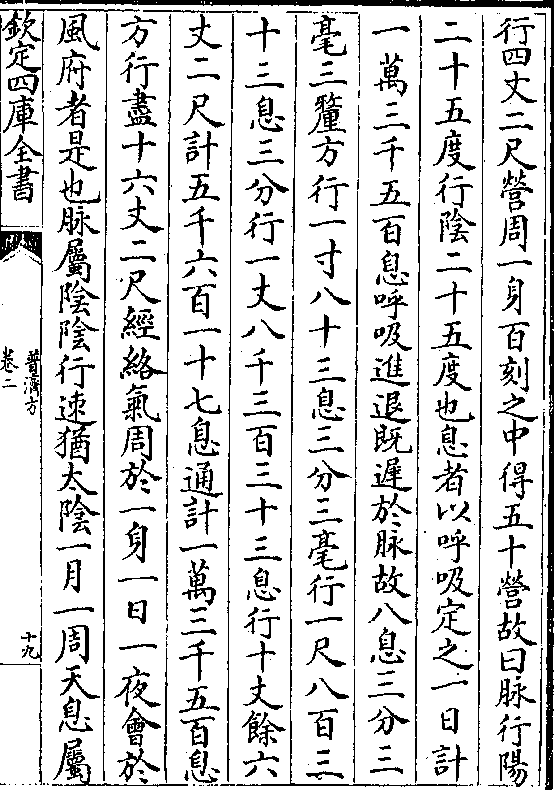 行四丈二尺營周一身百刻之中得五十營故曰脉行陽
二十五度行陰二十五度也息者以呼吸定之一日計
一萬三千五百息呼吸進退既遲於脉故八息三分三
毫三釐方行一寸八十三息三分三毫行一尺八百三
十三息三分行一丈八千三百三十三息行十丈餘六
丈二尺計五千六百一十七息通計一萬三千五百息
方行盡十六丈二尺經絡氣周於一身一日一夜會於
風府者是也脉屬陰陰行速猶太陰一月一周天息屬
欽定四庫全書
普濟方
卷二
十九